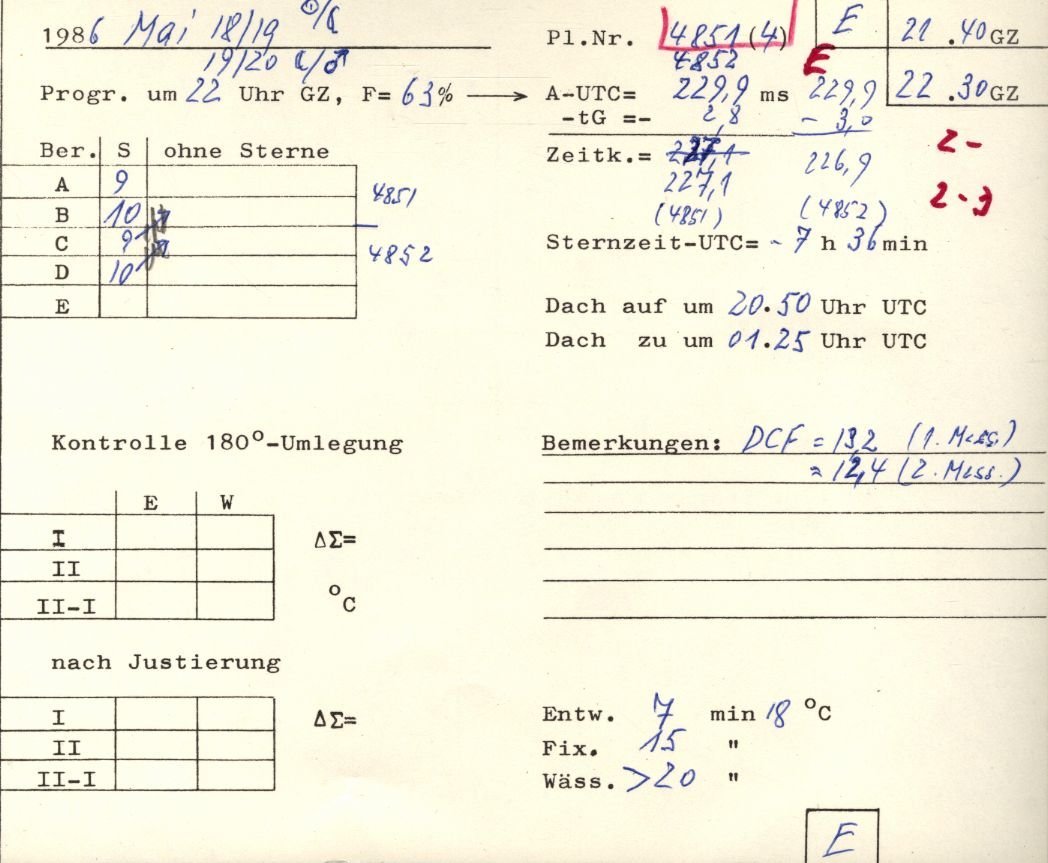 1986 Mai 18/19 ☉/☾
19/20 ☾/♂
Progr. um 22 Uhr GZ, F= 63% →
Ber. S ohne Sterne
A 9
B 10
C 9
D 10
E
4851
4852
Pl.Nr. 4851 (4)
4852
E
E
21.40 GZ
22.30 GZ
A-UTC= 229,9 ms 229,9
-tG =- 2,8 - 3,0
Zeitk.= 227,1 226,9
227,1
(4851) (4852)
2-
2-3
Sternzeit-UTC= - 7 h 36 min
Dach auf um 20.50 Uhr UTC
Dach zu um 01.25 Uhr UTC
Kontrolle 180°-Umlegung
E W
I ΔΣ=
II
II-I °C
nach Justierung
I ΔΣ=
II
II-I
Bemerkungen: DCF = 13,2 (1. Mess.)
= 12,4 (2. Mess.)
Entw. 7 min 18 °C
Fix. 15 "
Wäss. >20 "
E